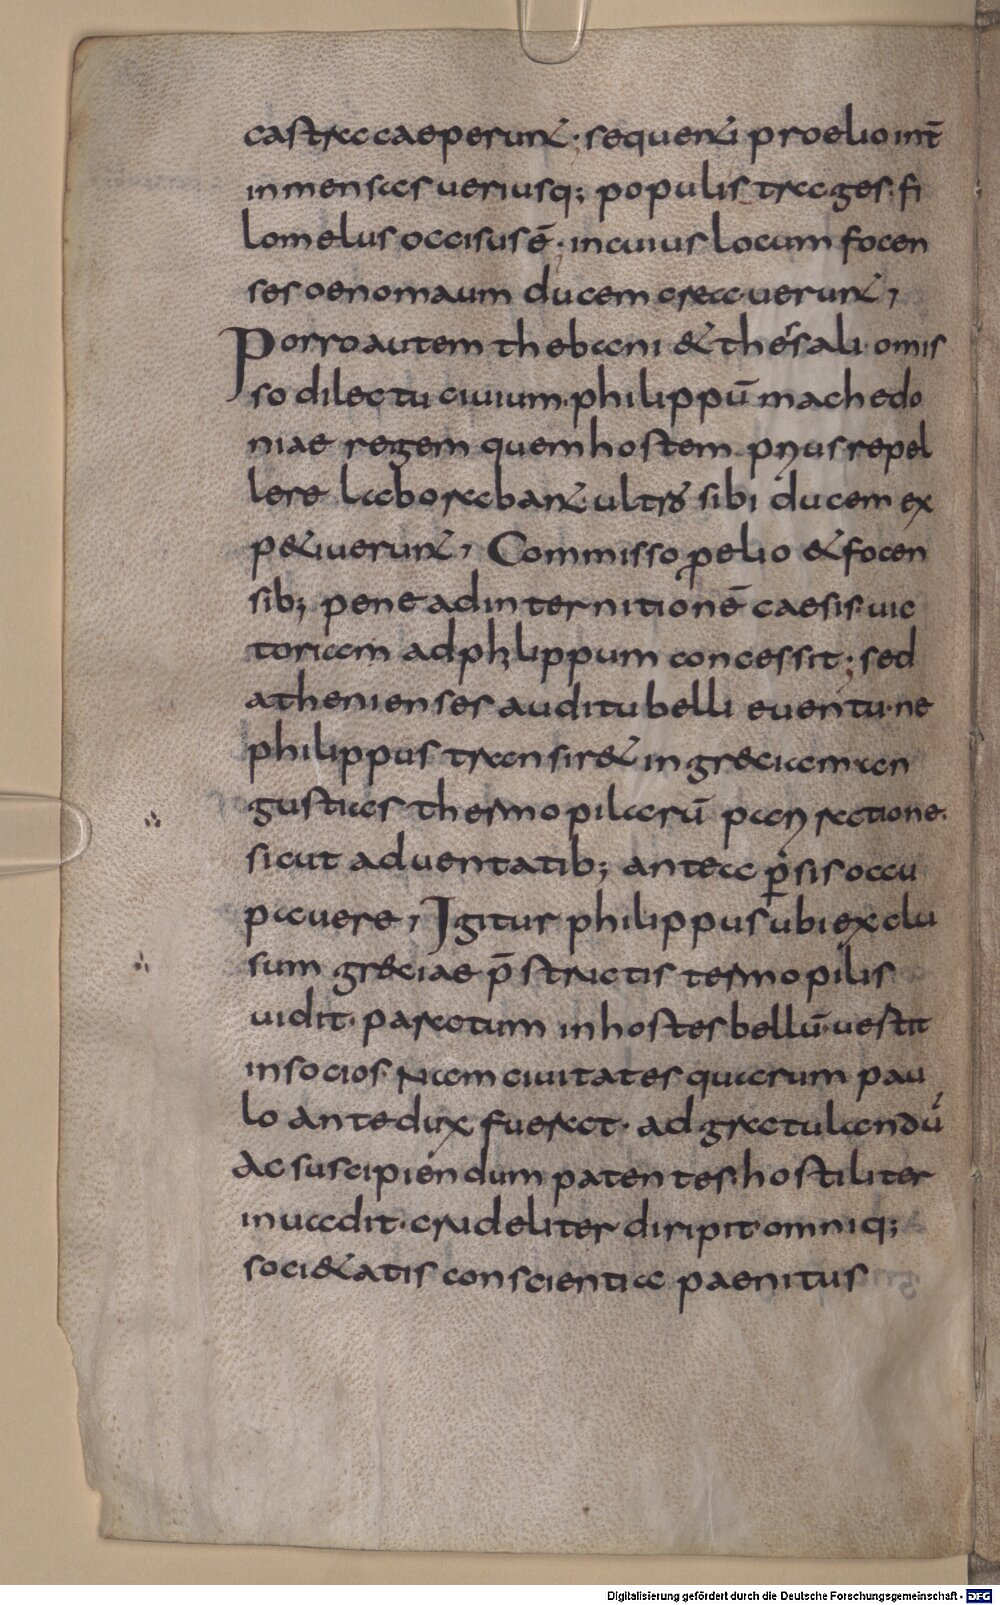 castra caeperunt; sequenti proelio int̄
inmensas utriusq; populis trages. fi
lomelus occisus ē; in cuius locum focen
ses oenomaum ducem creaverunt,
Porro autem thebani & thesali omis
so dilectu civium philippū machedo
niae regem quem hostem prius repel
lere laborabant. ultro sibi ducem ex
p&iverunt, Commisso p̱elio & focen
sib; pene ad internitionē caesis. vic
toriam ad philippum concessit; sed
athenienses auditu belli eventu. ne
philippus transir& in greciam an
gustias thermopilarū pari ratione.
sicut adventatib; antea p̱sis occu
pavere, Igitur philippus ubi exclu
sum greciae p̄structis termopilis
vidit. paratum in hostes bellū. vestit
in socios Nam civitates quarum pau
lo ante dux fuerat. ad gratulandū
Ac suscipiendum patentes. hostiliter
invadit. crudeliter diripit omniq;
soci&atis conscientia paenitus
Digitalisierung gefördert durch die Deutsche Forschungsgemeinschaft - DFG